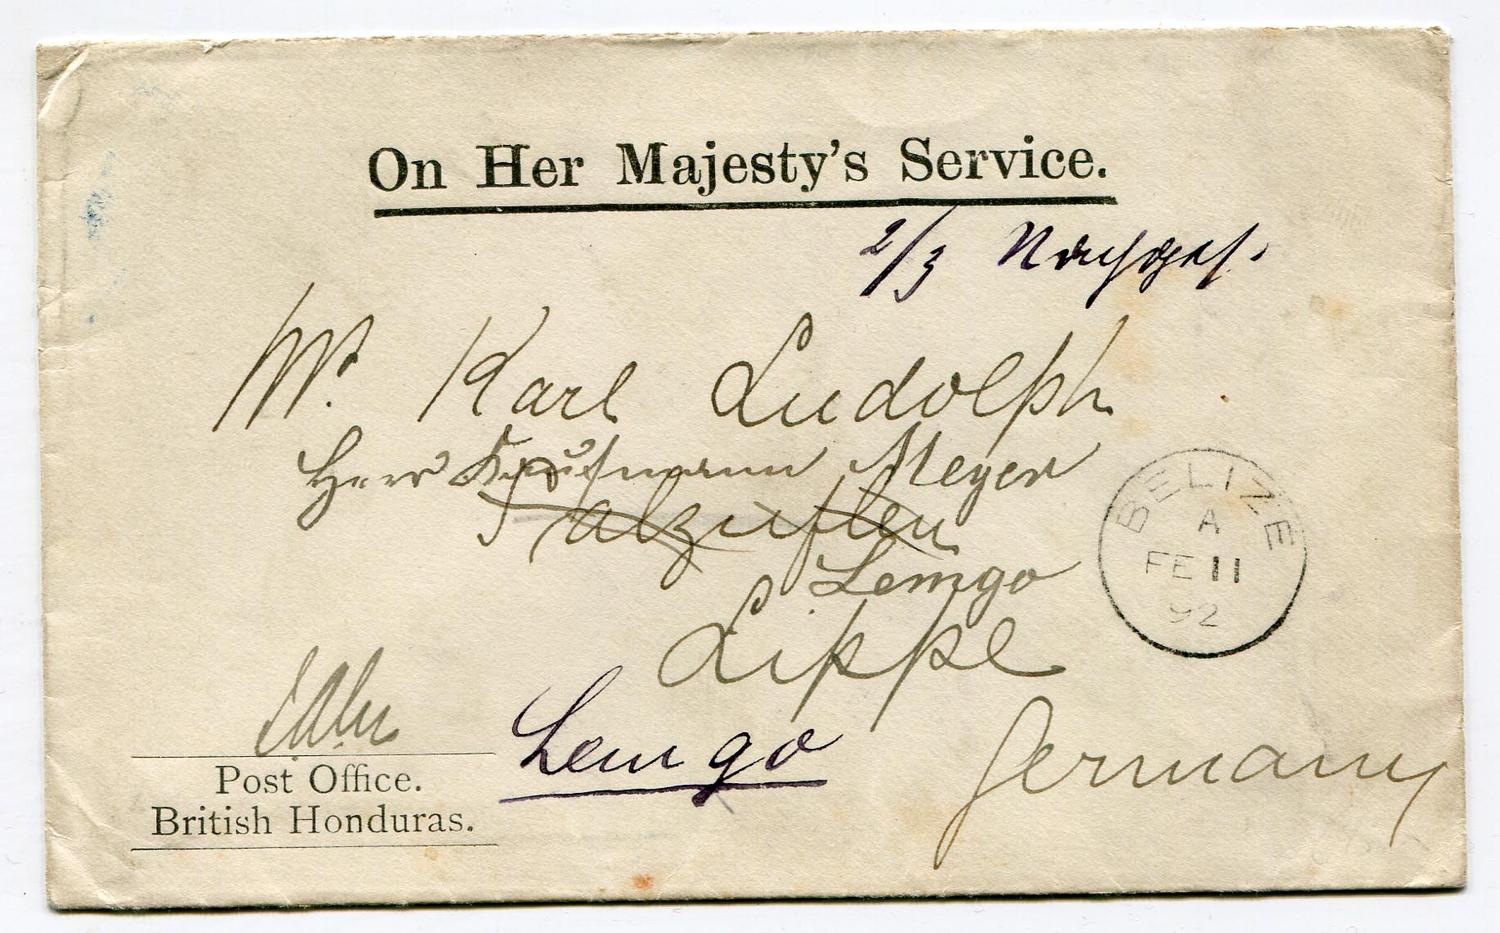 On Her Majesty's Service.
2/3 Nachges.
Mr. Karl Ludolph
Herr Kaufmann Meyer
Salzuflen
Lemgo
Lippe
Lemgo
Germany
Post Office.
British Honduras.
BELIZE
A
FE 11
92